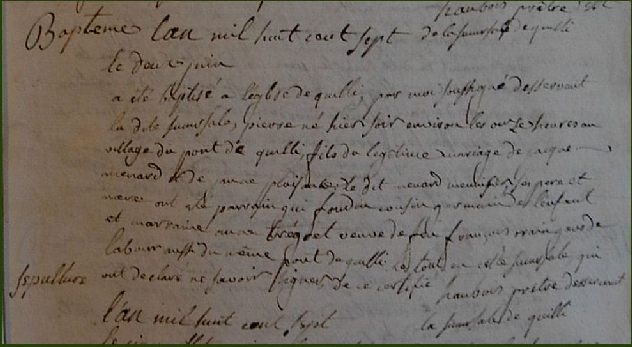 haubois prêtre
Baptême L'an mil huit cent sept de la succursale de quilli
le deux juin
a été Baptisé a l'église de quilli, par moi soussigné desservant
la dite succursale, pierre né hier soir environ les onze heures au
village du pont de quilli, fils du legitime mariage de jacque
menard et de jeanne plaisance, le dit menard meunier, ses pere et
mere ont été parrain qui cousin germain de l'enfant
et marraine anne tréguet veuve de feu françois
labour du même pont de quilli le tout en cette succursale qui
ont declaré ne savoir signer de ce certifié
haubois prêtre desservant
sepulture
l'an mil huit cent sept la succursale de quilli